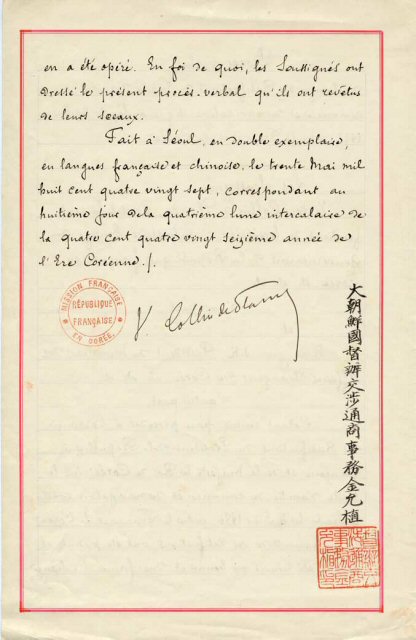 en a été opéré. En foi de quoi, les Soussignés ont
dressé le présent procès-verbal qu'ils ont revêtus
de leurs sceaux.
Fait à Séoul, en double exemplaire,
en langues française et chinoise, le trente Mai mil
huit cent quatre vingt sept, correspondant au
huitième jour de la quatrième lune intercalaire de
la quatre cent quatre vingt seizième année de
l'Ere Coréenne./.
MISSION FRANÇAISE
RÉPUBLIQUE
FRANÇAISE
EN CORÉE.
V. Collin de Plancy
大朝鮮國督辦交涉通商事務金允植